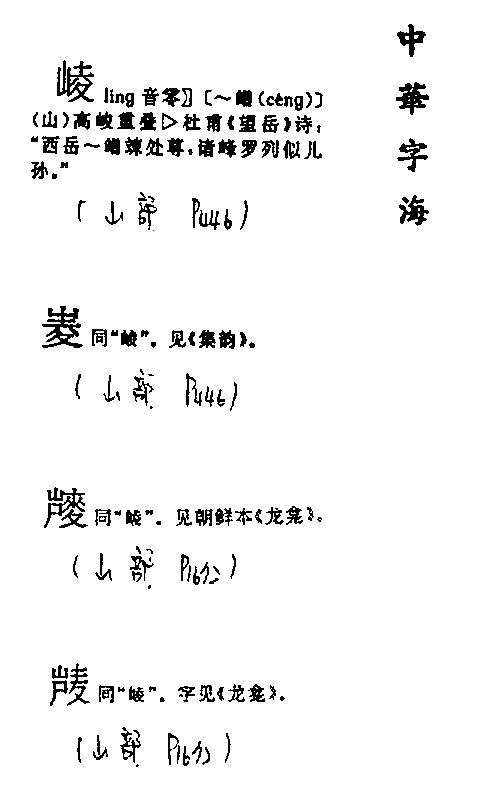 中華字海
崚 líng 音零〗〔～嶒(céng)〕
(山)高峻重叠▷杜甫《望岳》诗:
“西岳～嶒竦处尊,诸峰罗列似儿
孙。”
(山部 P446)
同“崚”。见《集韵》。
(山部 P446)
同“崚”。见朝鲜本《龙龛》。
(山部 P1672)
同“崚”。字见《龙龛》。
(山部